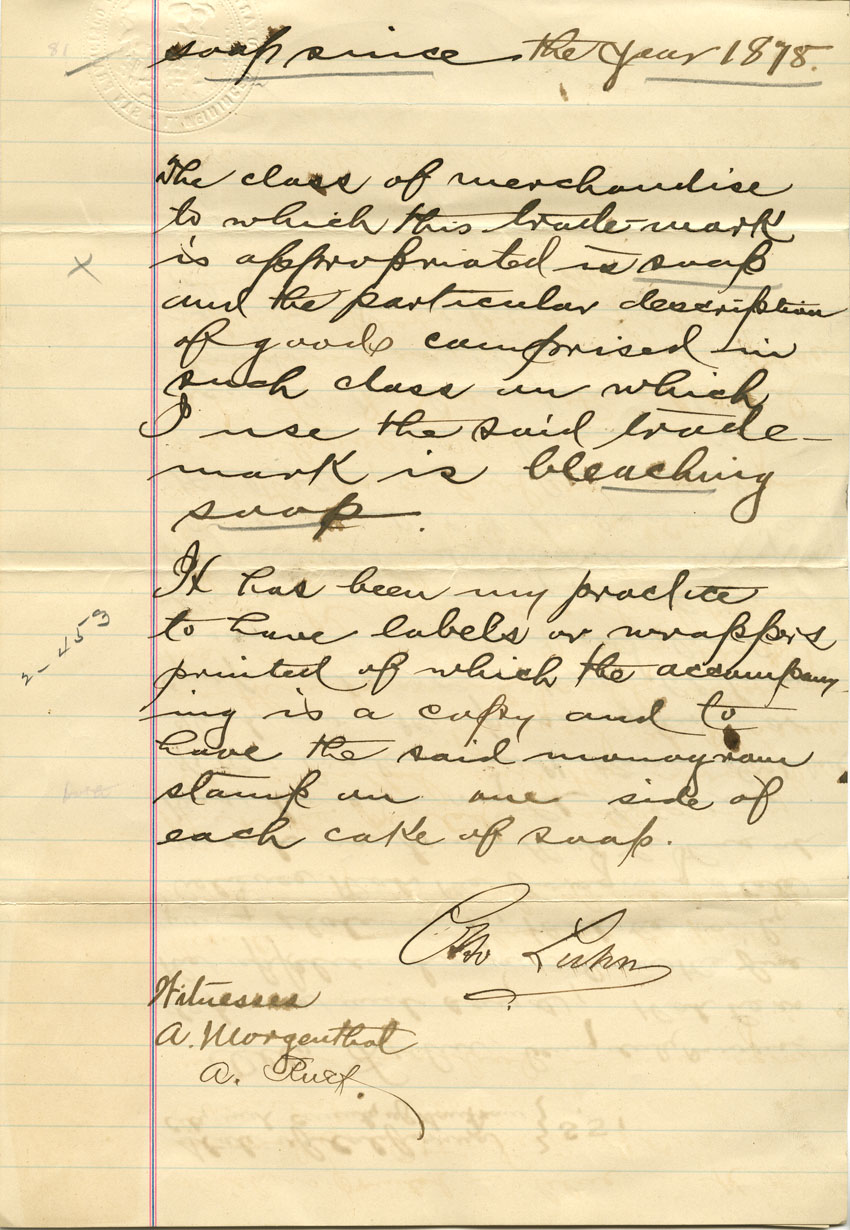 soap since the year 1878.
The class of merchandise
to which this trade-mark
is appropriated is soap
and the particular description
of goods comprised in
such class on which
I use the said trade-
mark is bleaching
soap.
It has been my practice
to have labels or wrappers
printed of which the accompany-
ing is a copy and to
have the said monogram
stamp on one side of
each cake of soap.
2-453
Otto Luhn
Witnesses
A. Morgenthal
A. Ruef.